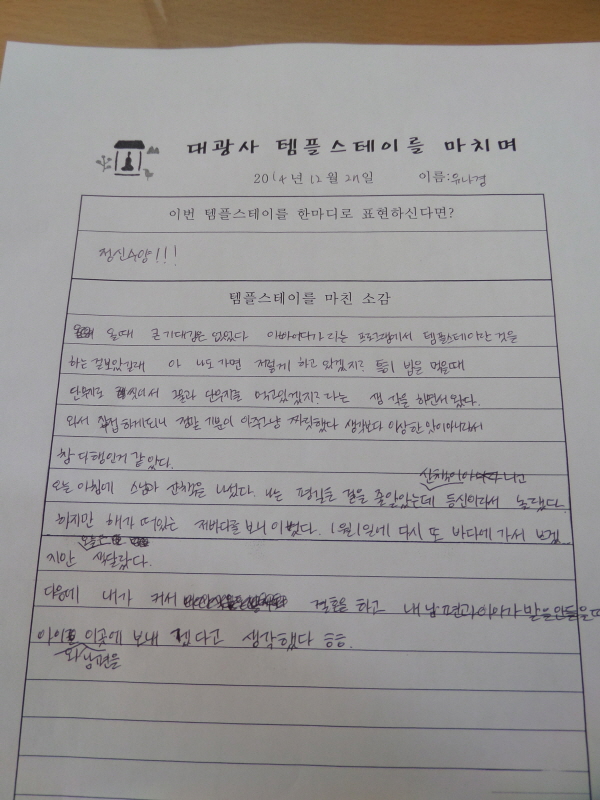 대광사 템플스테이를 마치며
2014년 12월 일 이름:유나경
이번 템플스테이를 한마디로 표현하신다면?
정신수양!!!
템플스테이를 마친 소감
올때 큰 기대감은 없었다 아빠어디가 라는 프로그램에서 템플스테이란 것을
하는걸보았길래 아 나도 가면 저렇게 하고 있겠지? 특히 밥을 먹을때
단무지로 씻어서 물과 단무지를 먹고있겠지? 라는 생각을 하면서 왔다.
와서 직접하게되니 정말 기분이 아주그냥 짜릿했다 생각보다 이상한 곳이아니라서
참 다행인거 같았다.
산책이아니고
오늘 아침에 스님과 산책을 나섰다. 나는 평길은 걸을 줄알았는데 등산이라서 놀랬다.
하지만 해가 떠있는 바다를 보니 이뻤다. 1월1일에 다시 또 바다에 가서 보겠
지만 색달랐다.
다음에 내가 커서 결혼을 하고 내 남편과아이가 말을안들을때
아이를 이곳에 보내 겠다고 생각했다 흐흐.
와 남편을